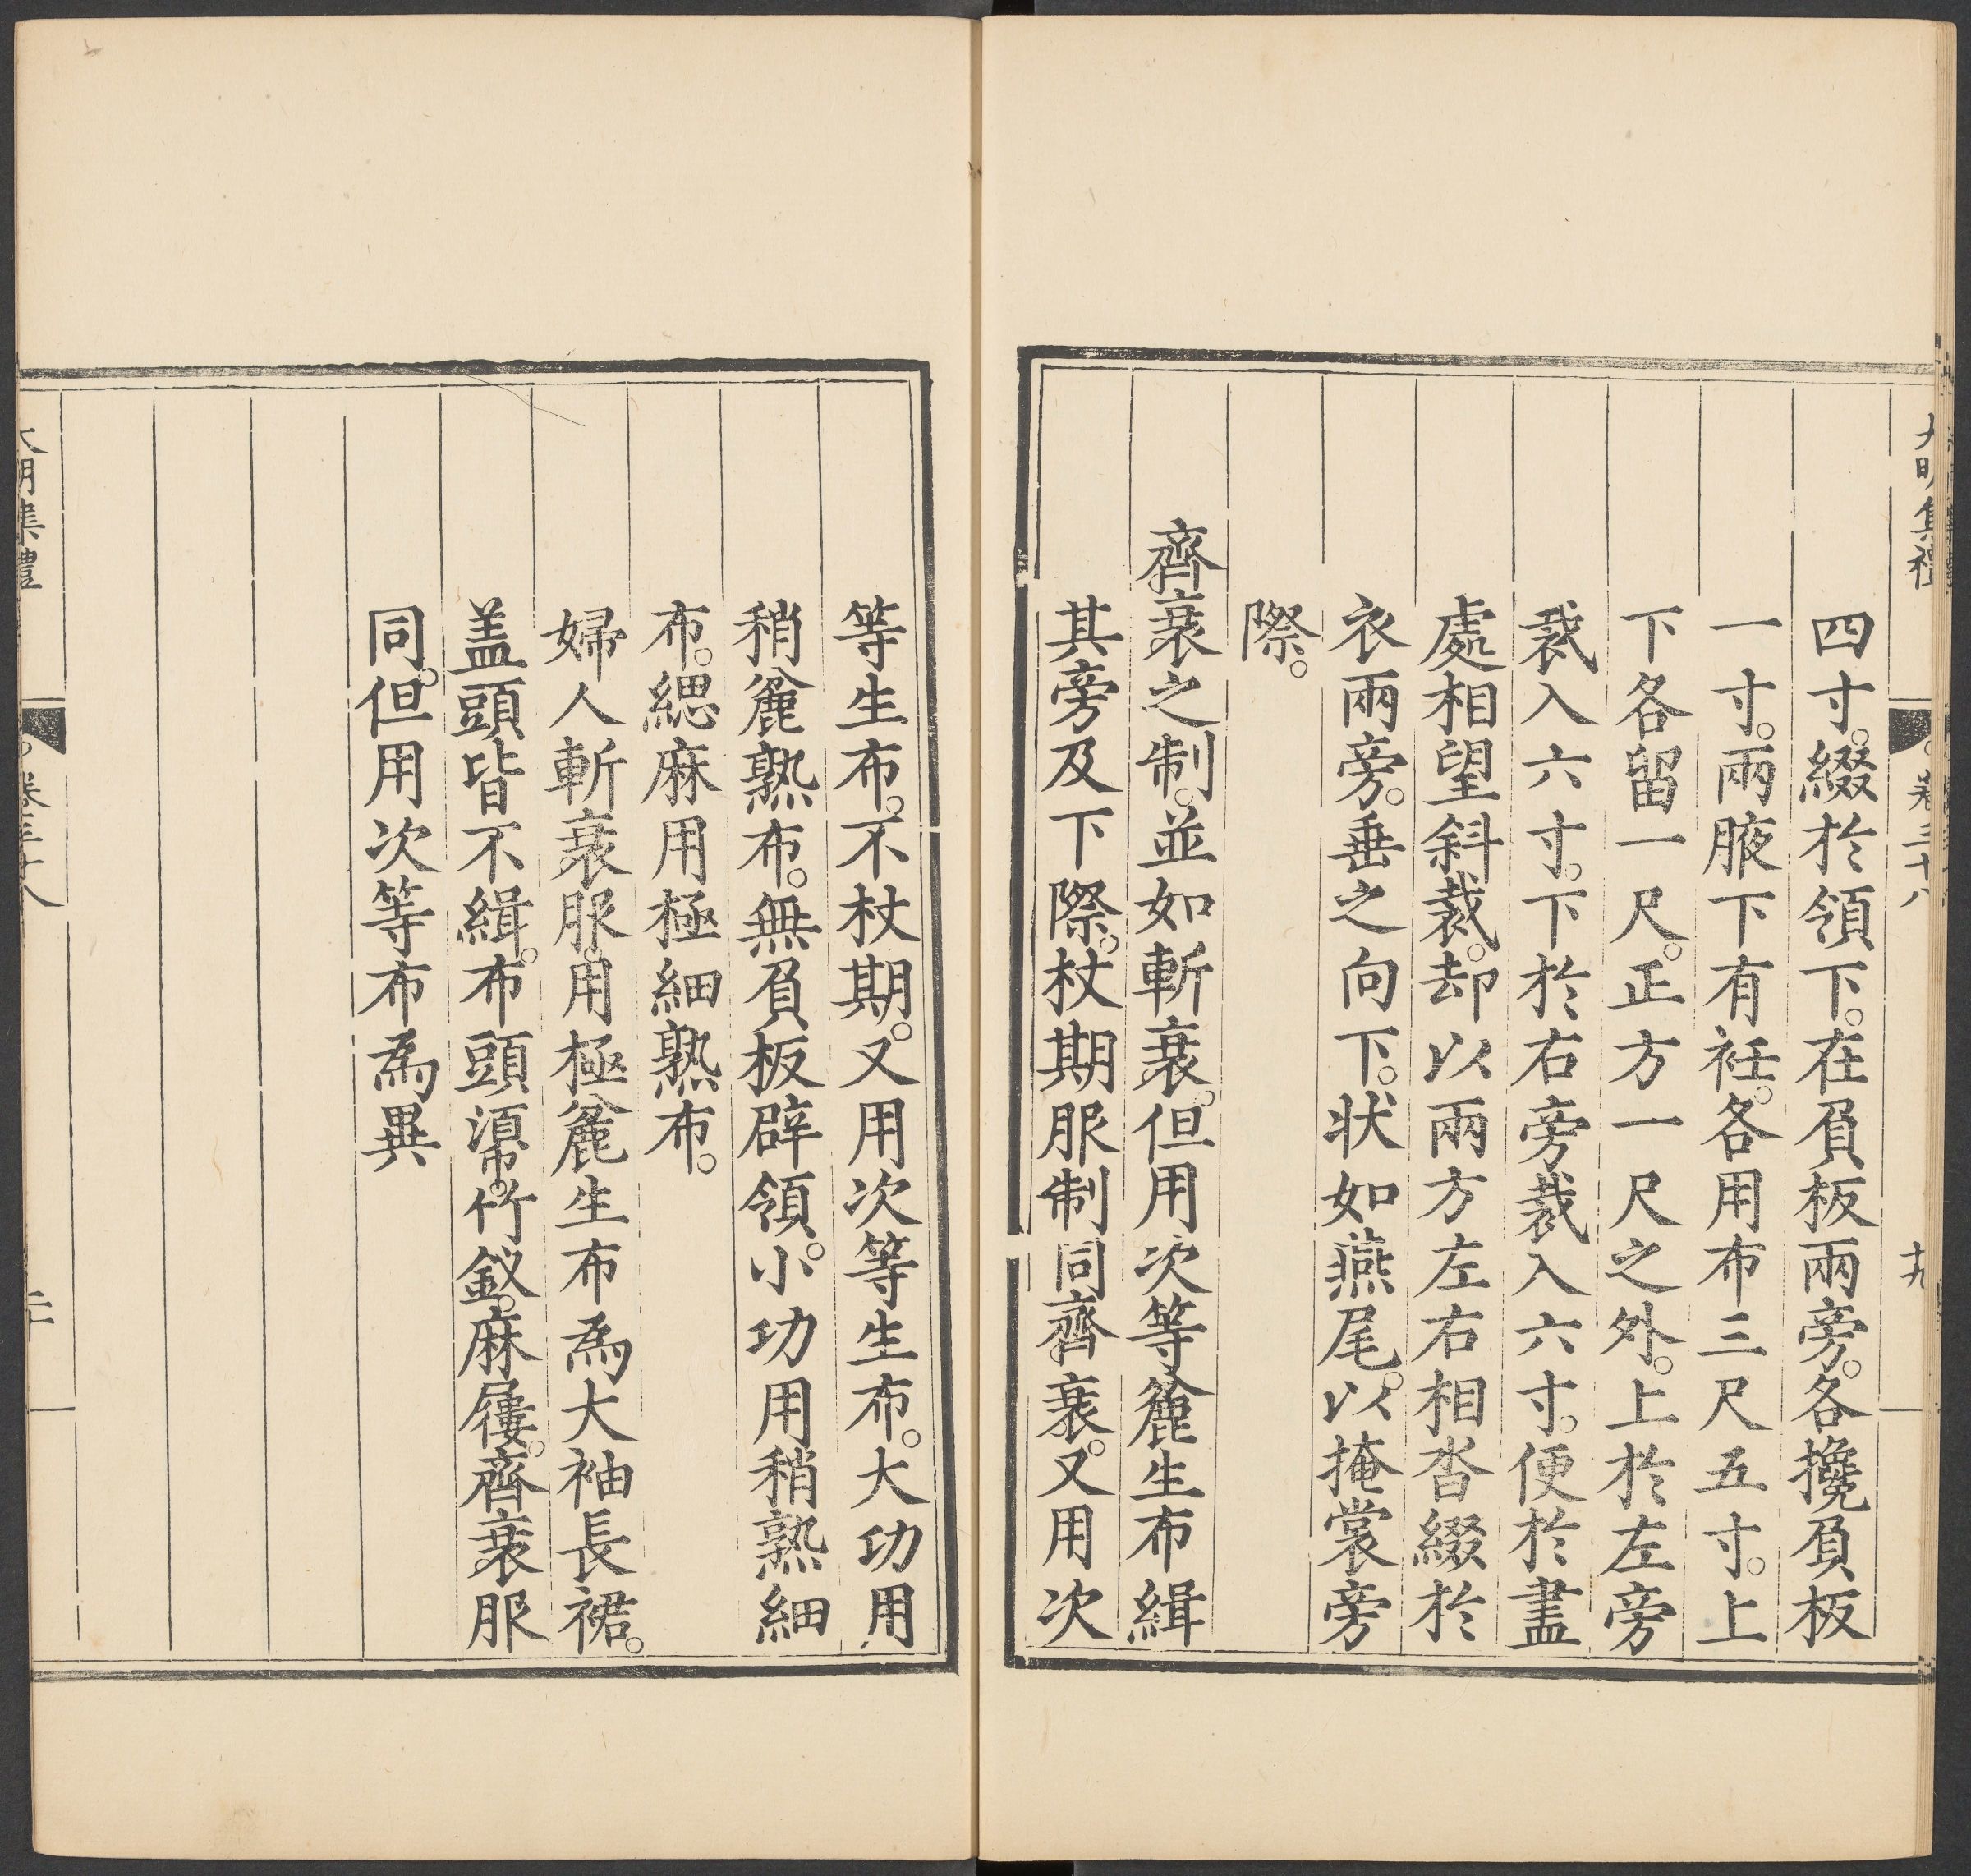 大明集禮
卷三十八
十九
四寸。綴於領下。在負板兩旁。各攙負板
一寸。兩腋下有衽。各用布三尺五寸。上
下各留一尺。正方一尺之外。上於左旁
裁入六寸。下於右旁裁入六寸。便於盡
處相望斜裁。却以兩方左右相沓綴於
衣兩旁。垂之向下。狀如燕尾。以掩裳旁
際。
齊衰之制。並如斬衰。但用次等麄生布緝
其旁及下際。杖期服制同齊衰。又用次
等生布。不杖期。又用次等生布。大功用
稍麄熟布。無負板辟領。小功用稍熟細
布。緦麻用極細熟布。
婦人斬衰服。用極麄生布為大袖長裙。
盖頭皆不緝。布頭𢄼。竹釵。麻屨。齊衰服
同。但用次等布為異
大明集禮
卷三十八
二十